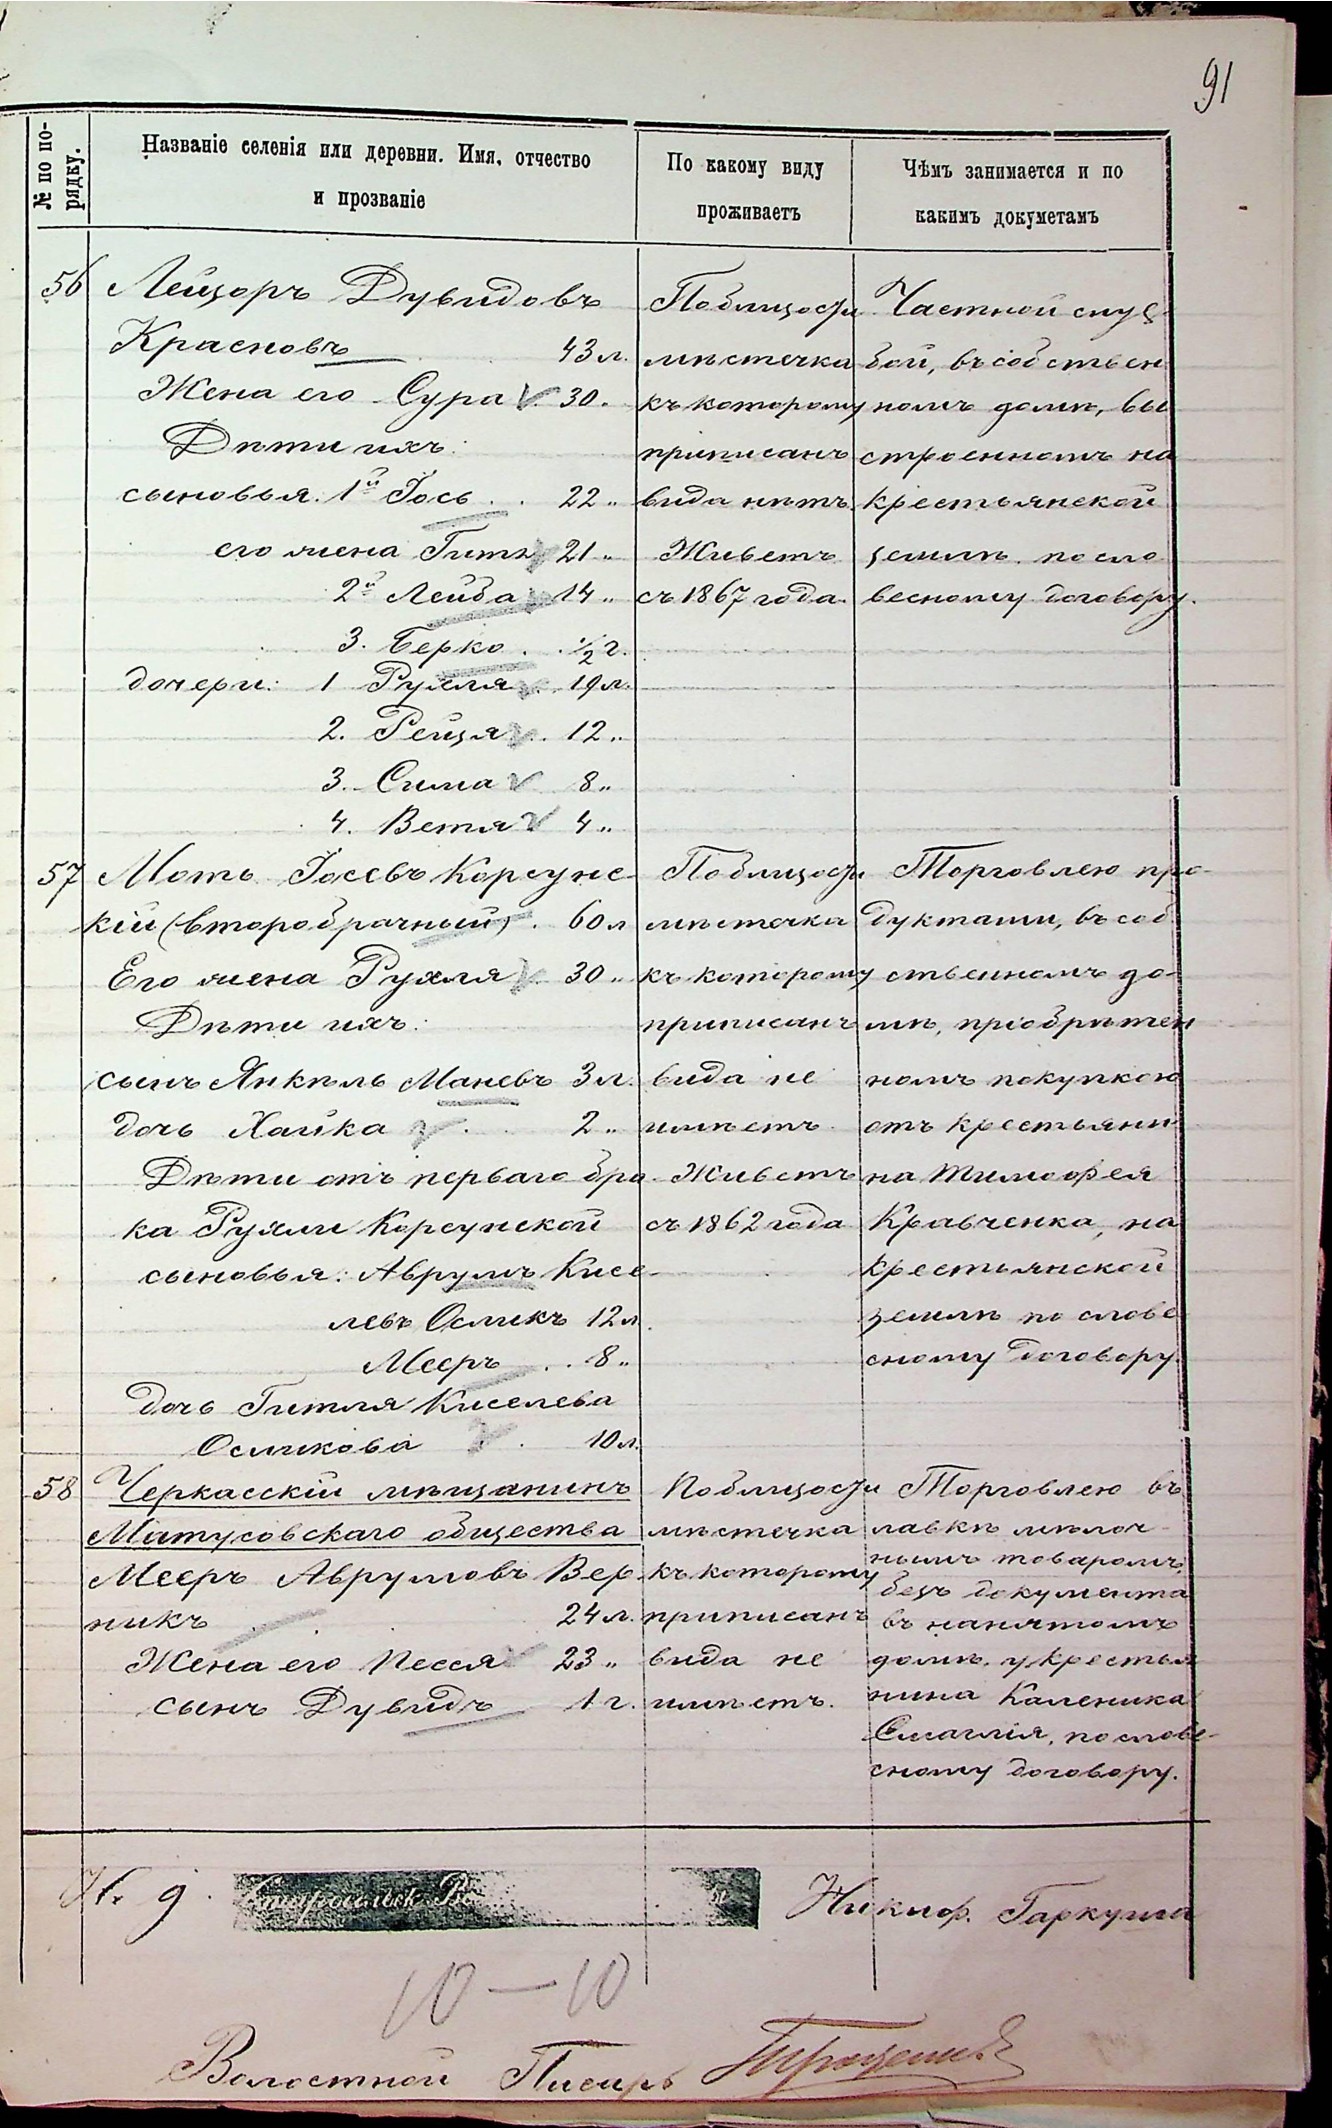 91
№ по по-
рядку.
Названіе селенія или деревни. Имя, отчество
и прозваніе
По какому виду
проживаетъ
Чѣмъ занимается и по
какимъ докуметамъ
56
Лейзоръ Дувидовъ
Красновъ 43 л.
Жена его Сура 30.
Дѣти ихъ:
сыновья: 1й Іось . . 22 "
его жена Гитя 21 "
2й Лейба 14 "
3. Берко . . 1/2 г.
дочери: 1 Рухля 19 л.
2. Рейзя . 12 "
3. Сима 8 "
4. Ветя 4 "
По близости
мѣстечка
къ которому
приписанъ
вида нѣтъ.
Живетъ
съ 1867 года.
Частной служ
бой, въ собствен
номъ домѣ, вы
строенномъ на
крестьянской
землѣ, по сло
весному договору.
57
Моть Іосевъ Корсунс-
кій (второбрачный) . 60 л
Его жена Рухля 30 "
Дѣти ихъ:
сынъ Янкель Маневъ 3 л.
дочь Хайка . 2 "
Дѣти отъ перваго бра
ка Рухли Корсунской
сыновья: Аврумъ Кисе-
левъ Осликъ 12 л.
Мееръ . . 8 "
дочь Гитля Киселева
Осликова . 10 л.
По близости
мѣстечка
къ которому
приписанъ
вида не
имѣетъ.
Живетъ
съ 1862 года
Торговлею про-
дуктами, въ соб
ственномъ до-
мѣ, пріобрѣтен
номъ покупкою
отъ крестьяни
на Тимофея
Кравченка, на
крестьянской
землѣ по слове
сному договору.
58
Черкасскій мѣщанинъ
Матусовскаго общества
Мееръ Аврумовъ Вер
никъ 24 л.
Жена его Песся 23 "
сынъ Дувидъ 1 г.
По близости
мѣстечка
къ которому
приписанъ
вида не
имѣетъ.
Торговлею въ
лавкѣ мелоч-
нымъ товаромъ,
безъ документа
въ нанятомъ
домѣ, у крестья
нина Каленика
Смаглія, по слове-
сному договору.
Никиф. Гаркуша
10 – 10
Волостной Писарь